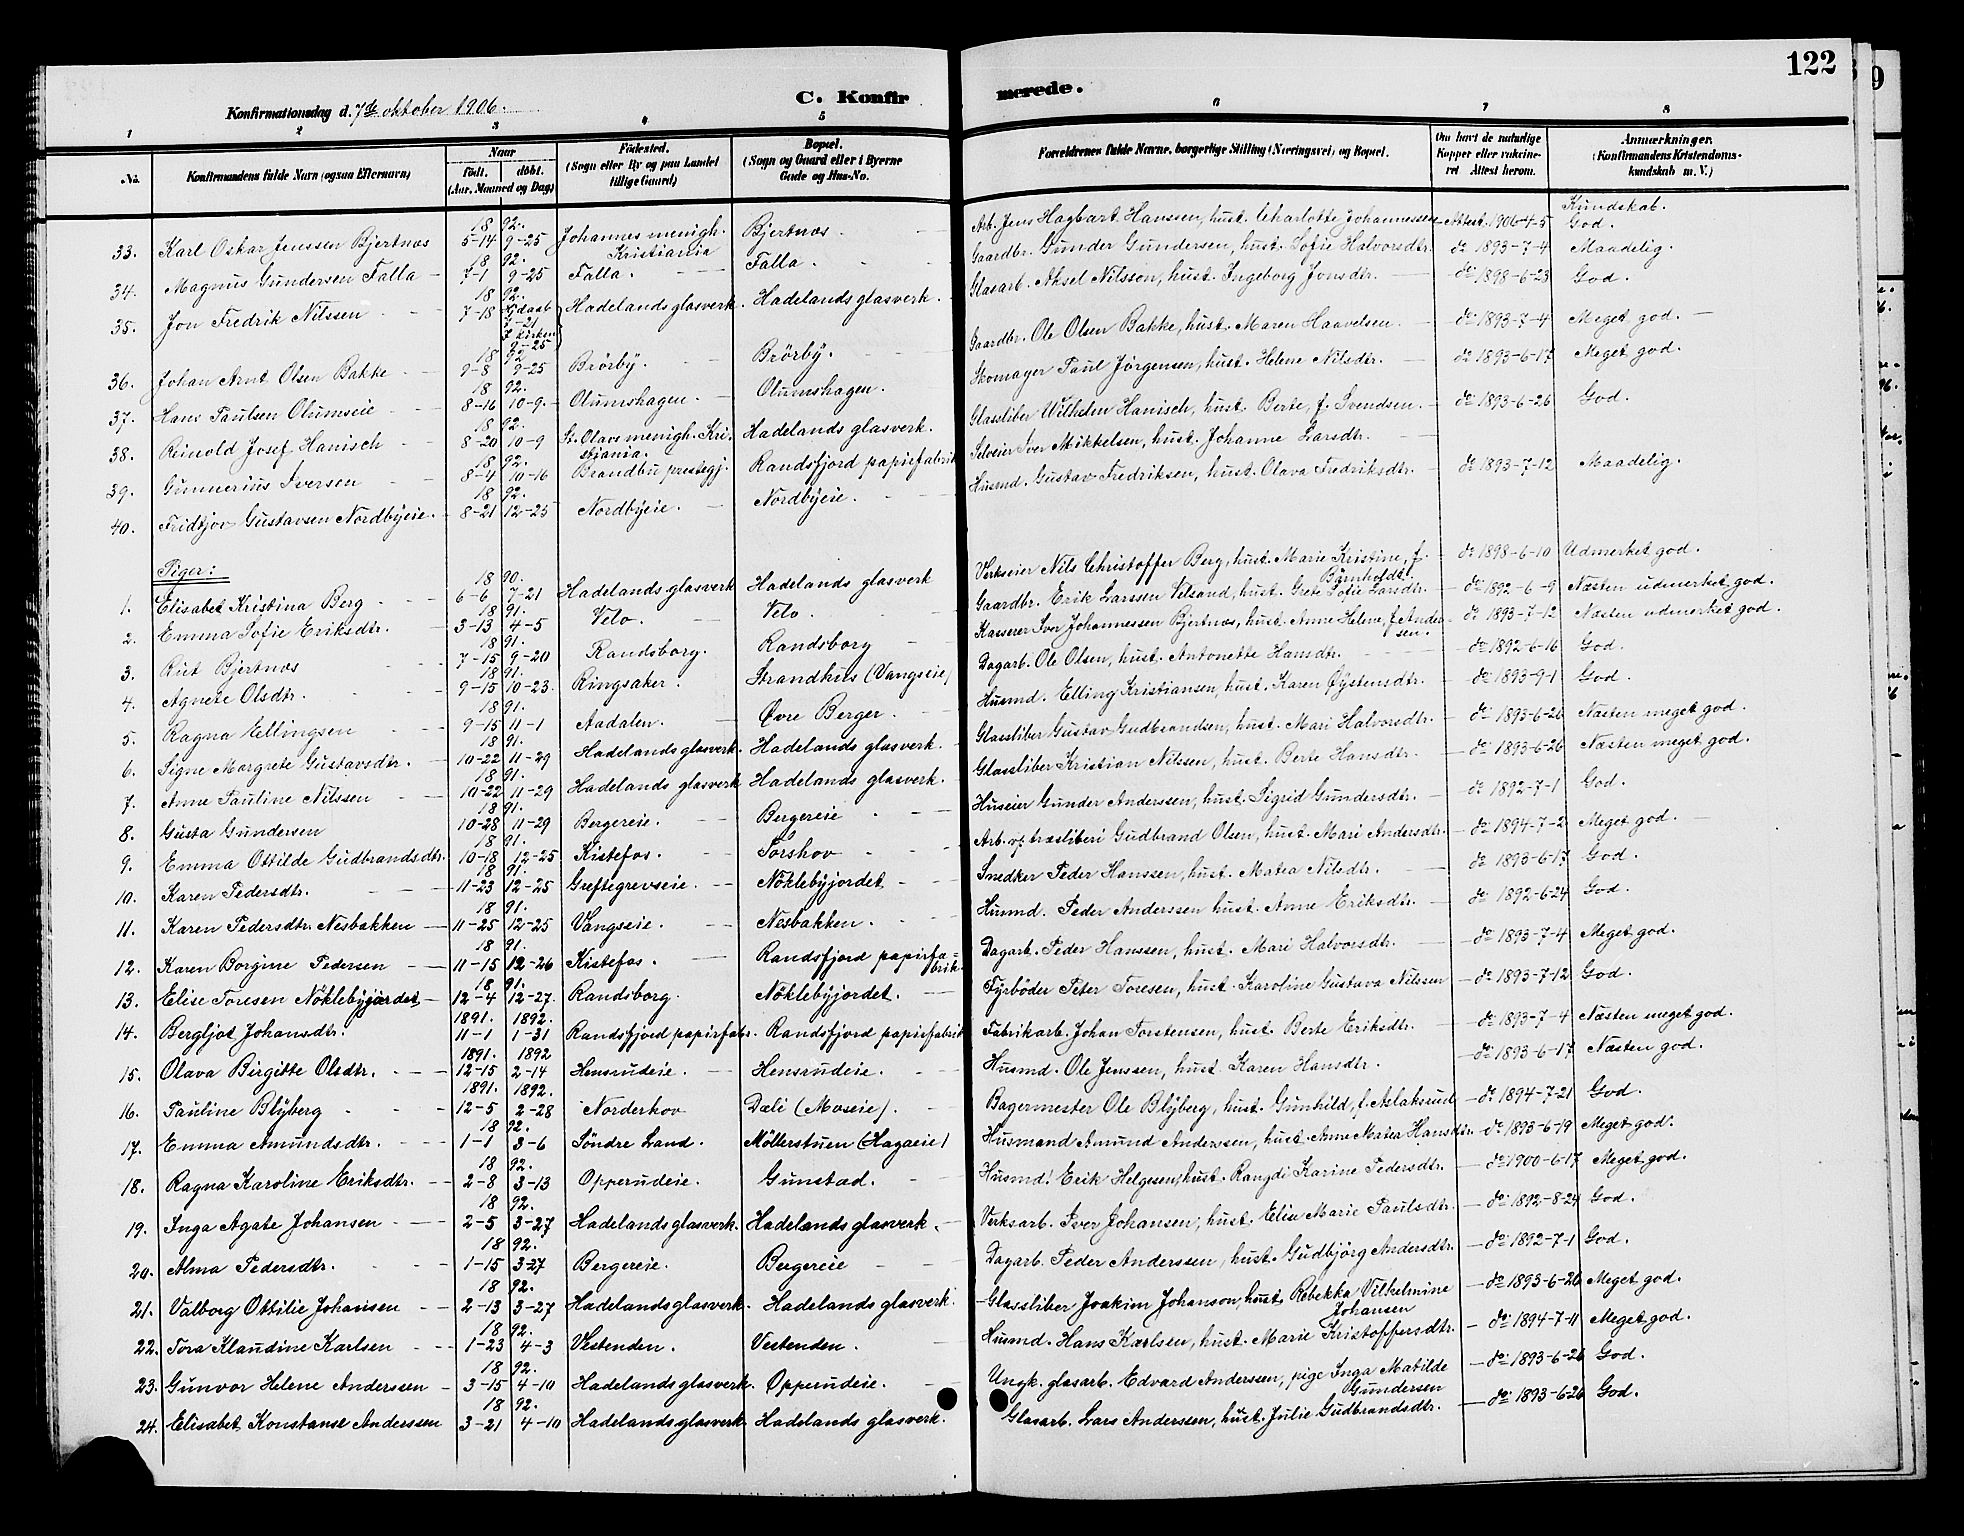 122
Konfirmationsdag d. 7de oktober 1906.
C. Konfirmerede.
1 2 3 4 5 6 7 8
No. Konfirmandens fulde Navn (ogsaa Efternavn) Naar født. døbt. (Aar, Maaned og Dag) Fødested. (Sogn eller By og paa Landet tillige Gaard) Bopæl. (Sogn og Gaard eller i Byerne Gade og Hus-No. Forældrenes fulde Navne, borgerlige Stilling (Næringsvei) og Bopæl. Om havt de naturlige Kopper eller vaccineret Attest herom. Anmærkninger. (Konfirmandens Kristendomskundskab m. V.)
Kundskab.
33. Karl Oskar Jenssen Bjertnæs 1892. 5-14 9-25 Johannes menigh. Kristiania Bjertnæs. Arb. Jens Hagbart Hanssen, hust. Charlotte Johannessen Attest. 1906-4-5 God.
34. Magnus Gundersen Falla 1892. 7-1 9-25 Falla. Falla. Gaardbr. Gunder Gundersen, hust. Sofie Halvorsdtr. do 1893-7-4 Maadelig.
35. Jon Fredrik Nilssen 1892. 7-18 Hjdaab 7-21 I kirken 9-25 Hadelands glasverk. Hadelands glasverk. Glasarb. Aksel Nilssen, hust. Ingeborg Jonsdtr. do 1898-6-23 God.
36. Johan Arnt Olsen Bakke 1892 9-8 9-25 Brörby. Brörby. Gaardbr. Ole Olsen Bakke, hust. Maren Haavelsen. do 1893-7-4 Meget god.
37. Hans Paulsen Olumseie 1892. 8-16 10-9. Olumshagen. Olumshagen. Skomager Paul Jörgensen, hust. Helene Nilsdtr. do 1893-6-17 Meget god.
38. Reinold Josef Hanisch 1892. 8-20 10-9 St. Olavs menigh. Kristiania. Hadelands glasverk. Glassliber Wilhelm Hanisch, hust. Berte, f. Svendsen. do 1893-6-26 God.
39. Gunnerius Iversen 1892. 8-4 10-16 Brandbu prestegj. Randsfjord papirfabrik Selveier Iver Mikkelsen, hust. Johanne Larsdtr.
40. Fridtjov Gustavsen Nordbyeie. 1892. 8-21 12-25 Nordbyeie. Nordbyeie. Husmd. Gustav Fredriksen, hust. Olava Fredriksdtr. do 1893-7-12 Maadelig.
Piger:
1. Elisabet Kristina Berg 1890. 6-6 7-21 Hadelands glasverk Hadelands glasverk Verkseier Nils Christoffer Berg, hust. Marie Kristine, f. Bärnholdt. do 1898-6-10 Udmerket god.
2. Emma Sofie Eriksdtr. 1891. 3-13 4-5 Velo. Velo. Gaardbr. Erik Larssen Velsand, hust. Grete Sofie Larsdtr. do 1892-6-9 Næsten udmerket god.
3. Rut Bjertnæs 1891. 7-15 9-20 Randsborg. Randsborg Kasserer Iver Johannessen Bjertnæs, hust. Anne Helene, f. Andersen. do 1893-7-12 Næsten udmerket god.
4. Agnete Olsdtr. 1891. 9-15 10-23. Ringsaker. Strandhus (Vangseie) Dagarb. Ole Olsen, hust. Antonette Hansdtr. do 1892-6-16 God.
5. Ragna Ellingsen 1891. 9-15 11-1 Aadalen. Øvre Berger. Husmd. Elling Kristiansen, hust. Karen Øystensdtr. do 1893-9-1 God.
6. Signe Margrete Gustavsdtr. 1891. 10-22 11-29 Hadelands glasverk. Hadelands glasverk. Glassliber Gustav Gudbrandsen, hust. Mari Halvorsdtr. do 1893-6-26 Næsten meget god.
7. Anne Pauline Nilssen 1891. 10-22 11-29 Hadelands glasverk Hadelands glasverk. Glassliber Kristian Nilssen, hust. Berte Hansdtr. do 1893-6-26 Næsten meget god.
8. Gusta Gundersen 1891. 10-28 11-29 Bergereie. Bergereie Huseier Gunder Anderssen, hust. Sigrid Gundersdtr. do 1892-7-1 God.
9. Emma Ottilde Gudbrandsdtr. 1891. 10-18 12-25 Kistefos. Sorshov Arb. v/ træsliberi Gudbrand Olsen, hust. Mari Andersdtr. do 1894-7-2 Meget god.
10. Karen Pedersdtr. 1891. 11-23 12-25 Greftegrevseie. Nöklebyjordet Snedker Peder Hanssen, hust. Matea Nilsdtr. do 1893-6-17 God.
11. Karen Pedersdtr. Nesbakken 1891. 11-25 12-25 Vangseie. Nesbakken. Husmd. Peder Anderssen hust. Anne Eriksdtr. do 1892-6-24 God.
12. Karen Borgine Pedersen 1891. 11-15 12-26 Kistefos. Randsfjord papirfabrik. Dagarb. Peder Hanssen, hust. Mari Halvorsdtr. do 1893-7-4 Meget god.
13. Elise Toresen Nöklebyjordet 1891. 12-4 12-27. Randsborg. Nöklebyjordet. Fyrböder Peter Toresen, hust. Karoline Gustava Nilssen do 1893-7-12 God.
14. Bergljot Johansdtr. 1891. 1892. 11-1 1-31 Randsfjord papirfabr. Randsfjord papirfabrik Fabrikarb. Johan Torstensen, hust. Berte Eriksdtr. do 1893-7-4 Næsten meget god.
15. Olava Birgitte Olsdtr. 1891. 1892 12-15 2-14 Hensrudeie. Hensrudeie. Husmd. Ole Jenssen, hust. Karen Hansdtr. do 1893-6-17 Næsten god.
16. Pauline Blyberg 1891. 1892. 12-5 2-28 Norderhov Dæli (Moseie). Bagermester Ole Blyberg, hust. Gunhild, f. Aslaksrud do 1894-7-21 God.
17. Emma Amundsdtr. 1892. 1-1 3-6 Söndre Land. Möllerstuen (Hagaeie) Husmand Amund Anderssen, hust. Anne Matea Hansdtr. do 1893-6-19 Meget god.
18. Ragna Karoline Eriksdtr. 1892. 2-8 3-13 Opperudeie. Gunstad. Husmd. Erik Helgesen, hust. Rangdi Karine Pedersdtr. do 1900-6-17 Meget god.
19. Inga Agate Johansen 1892. 2-5 3-27 Hadelands glasverk. Hadelands glasverk. Verksarb. Iver Johansen, hust. Elia Marie Paulsdtr. do 1892-8-24 God.
20. Alma Pedersdtr. 1892. 1-15 3-27 Bergereie. Bergereie Dagarb. Peder Anderssen, hust. Gudbjörg Andersdtr. do 1892-7-1 God.
21. Valborg Ottilie Johansen 1892. 2-13 3-27 Hadelands glasverk. Hadelands glasverk. Glassliber Joakim Johanson, hust. Rebekka Vilhelmine Johansen do 1893-6-26 Meget god.
22. Tora Klaudine Karlsen 1892. 1-23 4-3 Vestenden. Vestenden. Husmd. Hans Karlsen, hust. Marie Kristoffersdtr. do 1894-7-11 Meget god.
23. Gunvor Helene Anderssen 1892. 3-15 4-10 Hadelands glasverk. Opperudeie. Ungk. glasarb. Edvard Anderssen, pige Inga Matilde Gundersen do 1893-6-26 God.
24. Elisabet Konstanse Anderssen 1892. 3-21 4-10 Hadelands glasverk. Hadelands glasverk. Glasarb. Lars Anderssen, hust. Julie Gudbrandsdtr. do 1893-6-26 God.